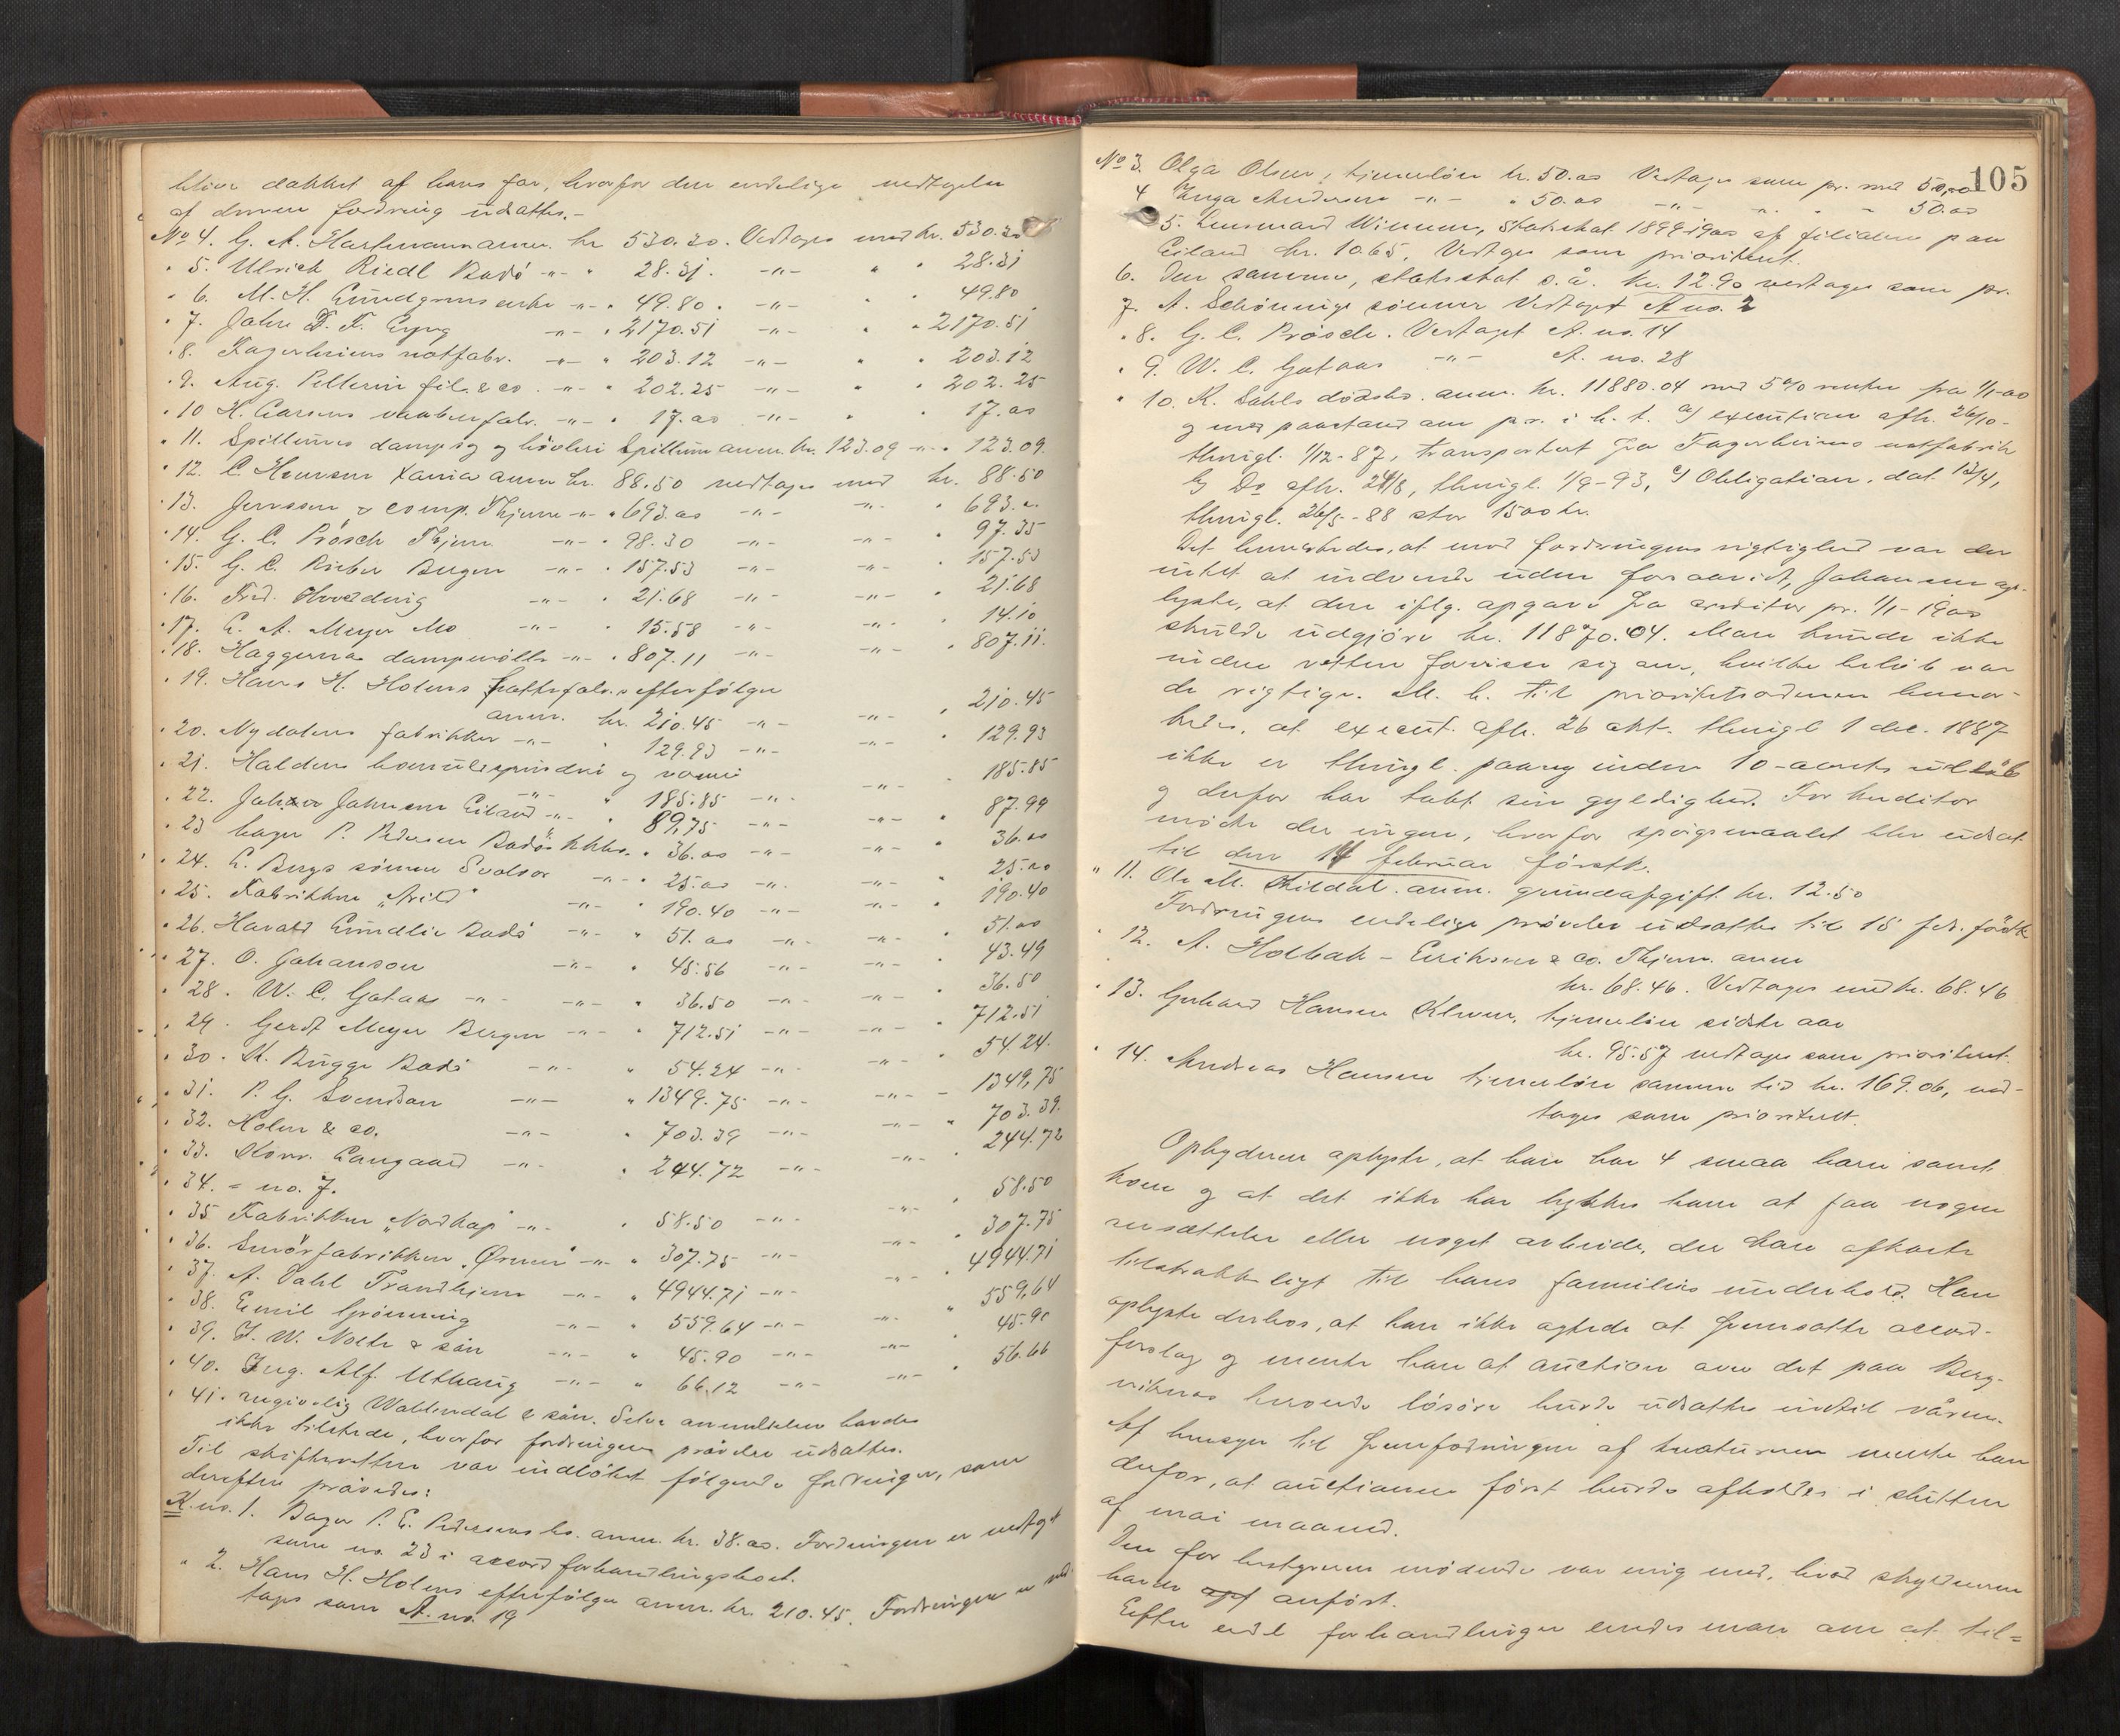 blive dækket af hans far, hvorfor den endelige vedtagelse
af denne fordring udsattes.-
No 4. G. A. Hartmann anm. kr 530.30. Vedtages med kr. 530.30
" 5. Ulrich Riedl Bodö -"- " 28.31. -"- " " 28.31
" 6. M. H. Lundgrens enke -"- " 49.80. -"- " " 49.80
" 7. Johs D. F. -"- " 2170.51 -"- " " 2170.51
" 8. Fagerheims notfabr. -"- " 203.12 -"- " " 203.12
" 9. Aug. Pellerin fil. & co. -"- " 202.25 -"- " " 202.25
" 10 H. Larsens vaabenfabr. -"- " 17.00 -"- " " 17.00
" 11. Spillums dampsag og høvleri Spillum anm. kr. 123.09 -"- " 123.09
" 12. C. Hansen Xania anm kr. 88.50 vedtages med kr. 88.50
" 13. Jenssen & comp. Thjem -"- " 693.00 -"- -"- " 693.-
" 14. G. C. Brösch Thjem. -"- " 98.30 -"- -"- " 97.35
" 15. G. C. Rieber Bergen -"- " 157.53 -"- -"- " 157.53
" 16. Fred. -"- " 21.68 -"- -"- " 21.68
" 17. L. A. Meyer Mo -"- " 15.58 -"- -"- " 14.10
" 18. Haggernæs dampmölle -"- " 807.11 -"- -"- " 807.11.
" 19. Hans H. Holens hattefabr.s efterfölger
anm. kr. 210.45 -"- -"- " 210.45
" 20. Nydalens fabrikker -"- " 129.93 -"- -"- " 129.93
" 21. Haldens bomuldspinderi og væveri
-"- " 185.85 -"- -"- " 185.85
" 22. Johan Johnsen Eiland -"- " 89,75 -"- -"- " 87.99
" 23 bager P. Pedersen Bodö -"- " 36.00 -"- -"- " 36.00
" 24. L. Bergs sönner Svolvær -"- " 25.00 -"- -"- " 25.00
" 25. Fabrikken "Arild" -"- " 190.40 -"- -"- " 190.40
" 26. Harald Lundlie Bodö -"- " 51.00 -"- -"- " 51.00
" 27. O. Johanson -"- " 45.56 -"- -"- " 43.49
" 28. W. C. Gotaas -"- -"- " 36.50 -"- -"- " 36.50
" 29. Gerdt Meyer Bergen -"- " 712.51 -"- -"- " 712.51
" 30. Sk. Bugge Bodö -"- " 54.24 -"- -"- " 54.24.
" 31. P. G. Svendsen -"- " 1349.75 -"- -"- " 1349,75
" 32. Holm & co. -"- " 703.39 -"- -"- " 703.39.
" 33. Konr. Langaard -"- " 244.72 -"- -"- " 244.72
" 34. = no. 7.
" 35 Fabrikken "Nordkap" -"- " 58.50 -"- -"- " 58.50
" 36. Smörfabrikken "Ørnen" -"- " 307.75 -"- -"- " 307.75
" 37. A. Dahl Trondhjem -"- " 4944.71 -"- -"- " 4944.71
" 38. Emil Grönning -"- " 559.64 -"- -"- " 559,64
" 39. J. W. Nolte & sön -"- " 45.90 -"- -"- " 45.90
" 40. Ing. Alf. Utharg -"- " 66.12 -"- -"- " 56.66
" 41. angivelig Wallendal & sön. Selve anmeldelsen havdes
ikke tilstede, hvorfor fordringens prövelse udsattes.
Til skifteretten var indlöbet fölgende fordringer, som
derefter prövedes:
K. no. 1. Bager P. E. Pedersens bo. anm. kr. 38.00. Fordringen er vedtaget
som no 23 i accordforhandlingsboet.
" 2. Hans H. Holens efterfölger anm. kr. 210.45. Fordringen er ved-
tages som A. no. 19
105
No 3. Olga Olsen, tjenerlön kr. 50.00 Vedtages som pr. med 50,00
4 Inga Andersen -"- " 50.00 -"- -"- " - 50.00
" 5. Lensmand Winum, Statsskat 1899-1900 af filialen paa
Eiland kr. 10.65. Vedtages som prioriteret.
6. Den samme, statsskat s. å. kr. 12.90 vedtages som pr.
7. A. Schönnings sönner Vedtaget A no. 2
" 8. G. C. Brösch. Vedtaget A. no. 14
" 9. W. C. Gotaas -"- A. no. 28
" 10. K. Dahls dödsbo. anm. kr. 11880.04 med 5% renter fra 1/1-00
og med paastand om pr. i h. t. a) execution afh. 26/10-
thingl. 1/12-87, transporteret fra Fagerheims notfabrik
b) Do afh. 24/8, thingl. 1/9-93, c) Obligation, dat 13/4,
thingl. 26/5-88 stor 1500 kr.
Det bemærkedes, at mod fordringens rigtighed var der
intet at indvende uden forsaavidt, Johansen op-
lyste, at den iflg. opgave fra creditor pr. 1/1-1900
skulde udgjöre kr. 11870.04. Man kunde ikke
inden retten forvisse sig om, hvilket belöb var
de rigtige. M. h. til prioritetsordenen bemær-
kedes, at execut. afh. 26 okt. thingl 1 dec. 1887
ikke er thingl. paany inden 10-aarets udlöb
og derfor har tabt sin gyldighed. For kreditor
mödte der ingen, hvorfor spörgsmaalet blev udsat
til den 14 februar förstk.
" 11. Ole M. Kildal. anm. grundafgift kr. 12.50
Fordringens endelige prövelse udsattes til 15 feb. förstk
" 12. A. Holbak - Eriksen & co. Thjem. anm
kr. 68.46. Vedtages med kr. 68.46
" 13. Gerhard Hansen Kleven, tjenerlön sidste aar
kr. 95.57 vedtages som prioriteret.
" 14. Andreas Hansen tjenerlön samme tid kr. 169.06, ved-
tages som prioriteret.
Opbyderen oplyste, at han har 4 smaa barn samt
kone og at det ikke har lykkes ham at faa nogen
ansættelse eller noget arbeide, der kan afkaste
tilstrækkeligt til hans familiens underhold. Han
oplyste derhos, at han ikke agtede at fremsætte accord-
forslag og mente han at auction over det paa Berg-
viknes beroende lösöre burde udsættes indtil våren.
Af hensyn til fremfodringen af kreaturene mente han
derfor, at auctionen först burde afholdes i slutten
af mai maaned.
Den for bestyreren mödende var enig med, hvad skyldneren
havde anfört.
Efter endt forhandlinger enedes man om at til=